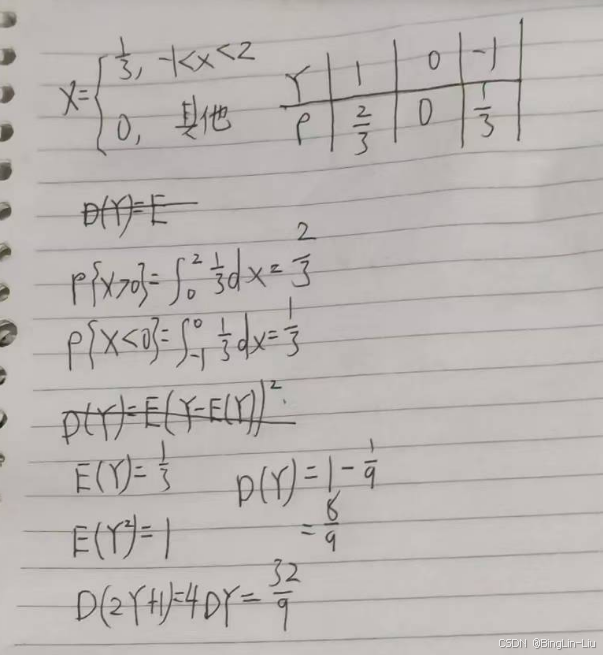 X = { 1/3, -1<x<2
0, 其他
Y | 1 | 0 | -1
P | 2/3 | 0 | 1/3
D(Y)=E
P{X>0}=∫₀² 1/3 dx = 2/3
P{X<0}=∫₋₁⁰ 1/3 dx = 1/3
D(Y)=E(Y-E(Y))².
E(Y)=1/3
D(Y)=1-1/9
=8/9
E(Y²)=1
D(2Y+1)=4DY=32/9
CSDN @BingLin-Liu